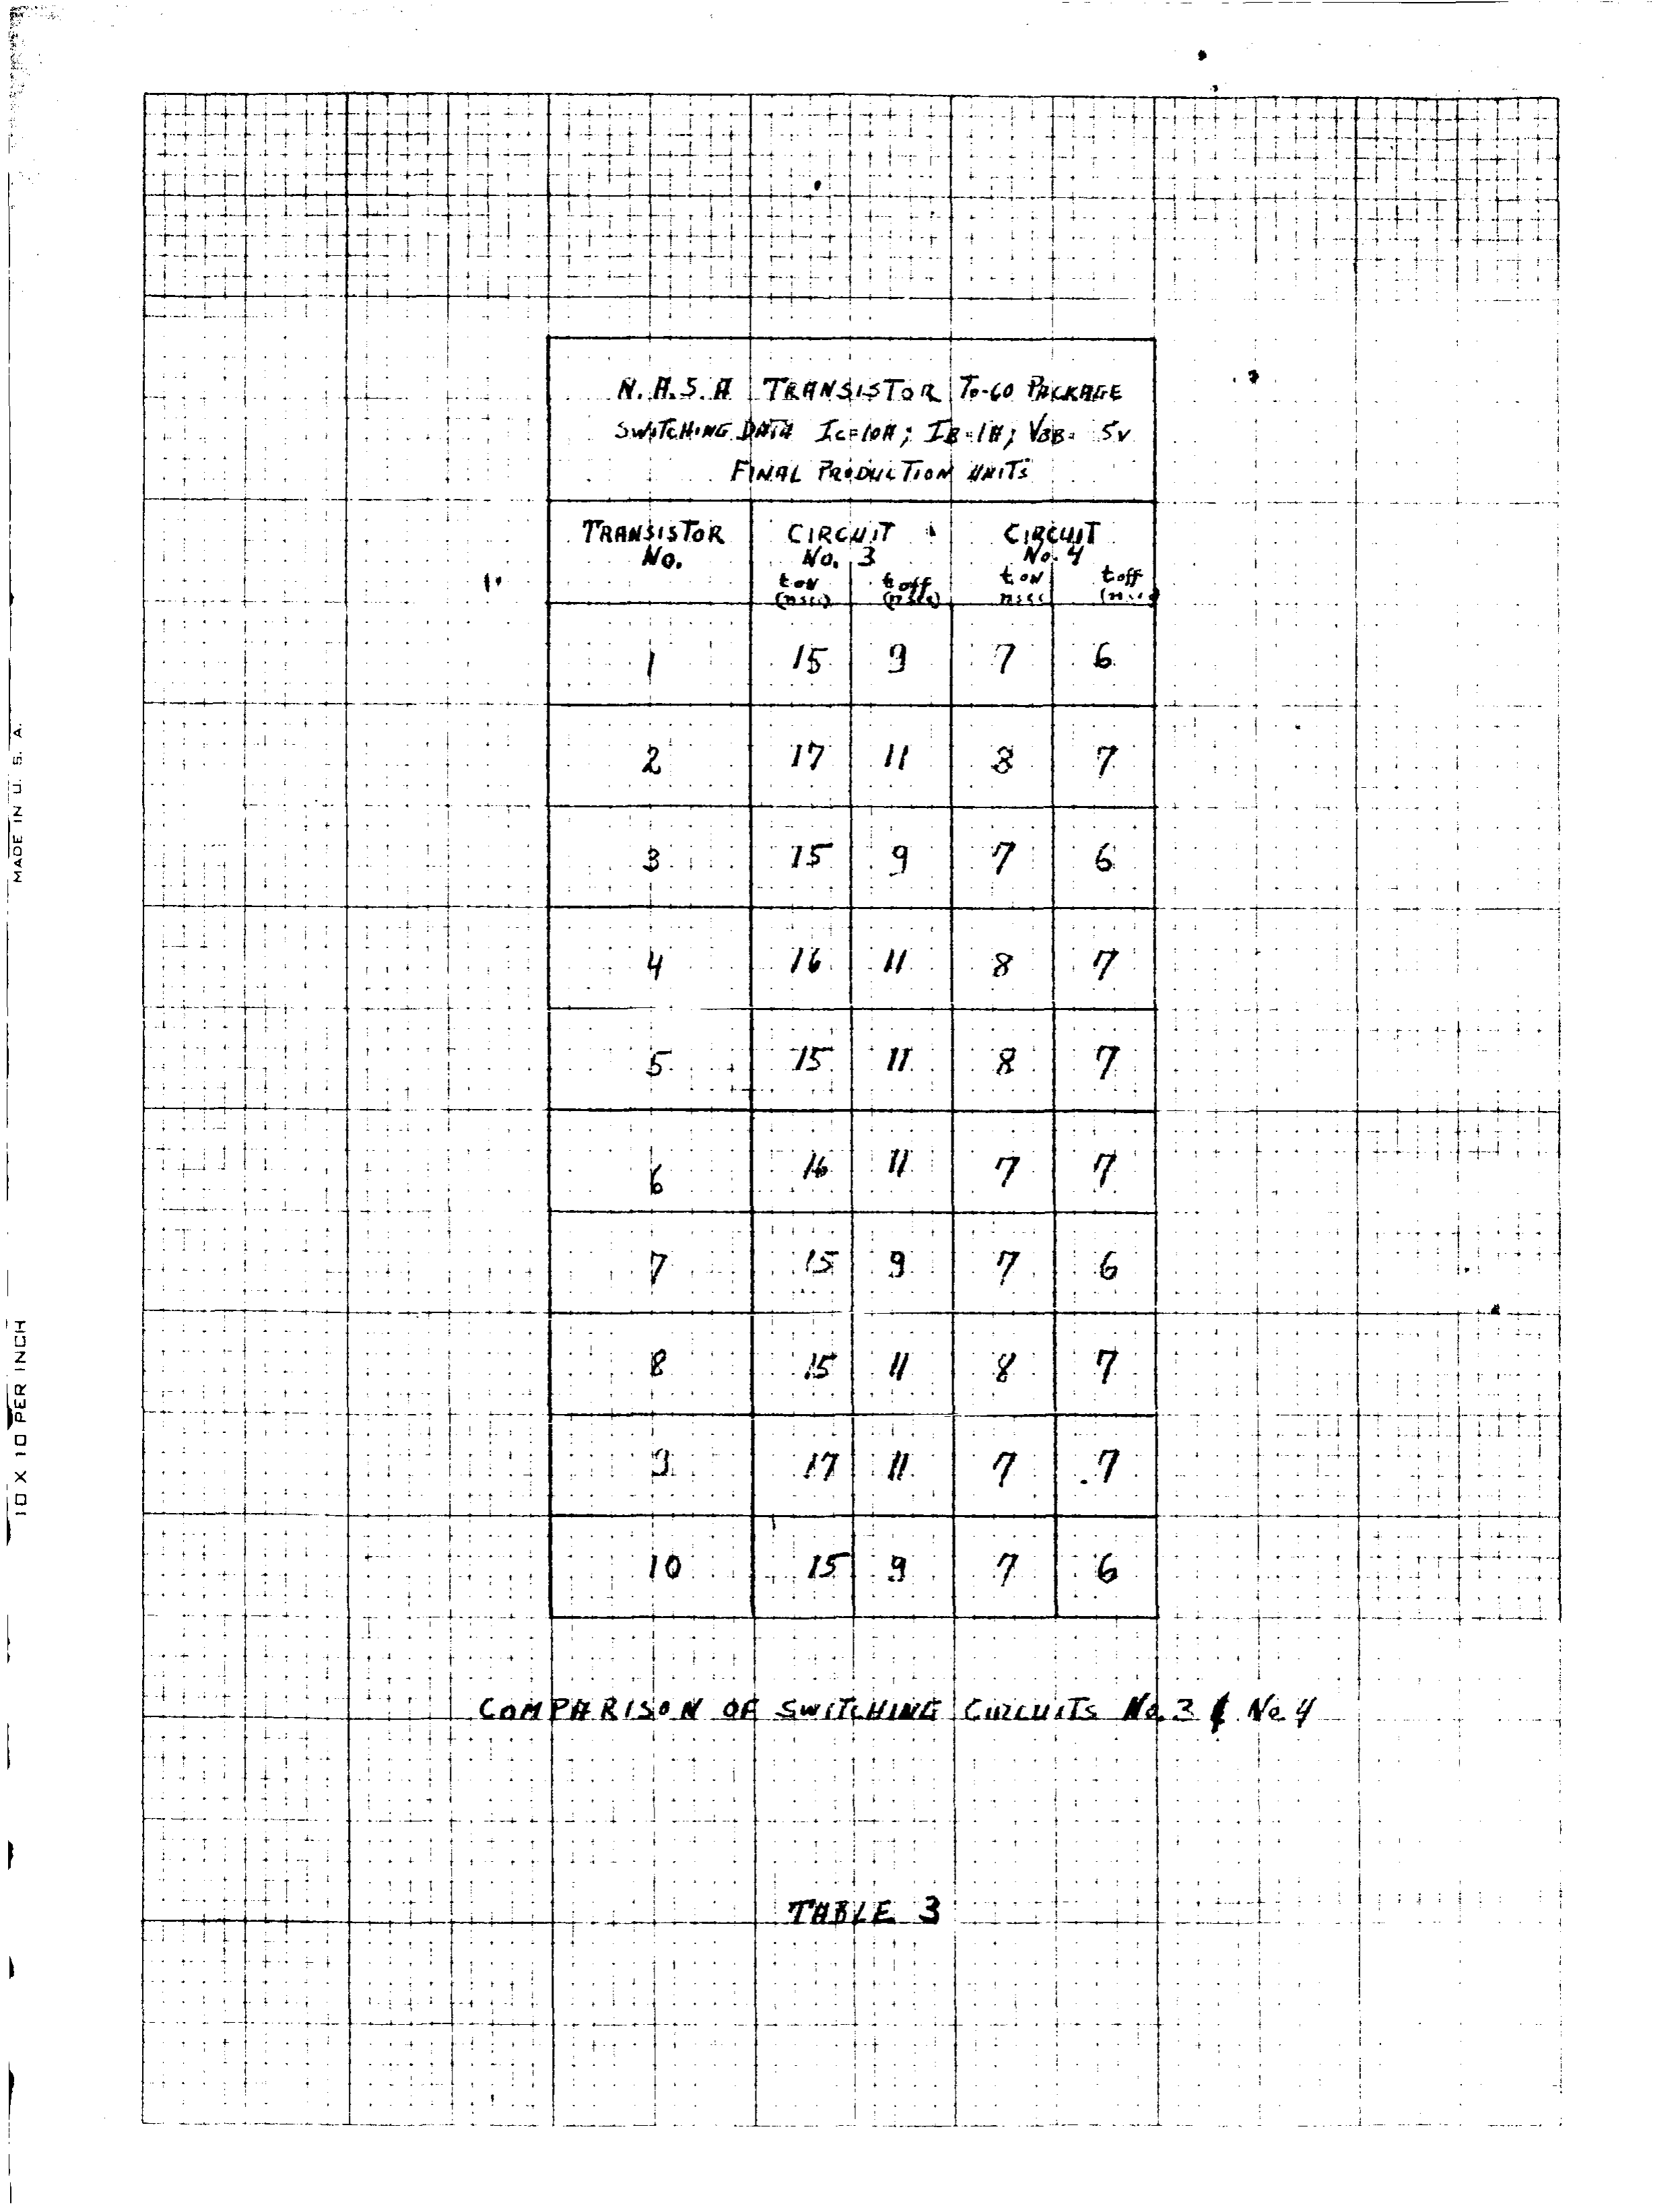 N.A.S.A TRANSISTOR TO-60 PACKAGE
SWITCHING DATA IC=10A; IB=1A; VBB= 5V
FINAL PRODUCTION UNITS
TRANSISTOR No. CIRCUIT No. 3 CIRCUIT No. 4
ton (nsec) toff (nsec) ton nsec toff (nsec)
1 15 9 7 6
2 17 11 8 7
3 15 9 7 6
4 16 11 8 7
5 15 11 8 7
6 16 11 7 7
7 15 9 7 6
8 15 11 8 7
9 17 11 7 7
10 15 9 7 6
COMPARISON OF SWITCHING CIRCUITS No. 3 & No. 4
TABLE 3
MADE IN U. S. A.
10 X 10 PER INCH